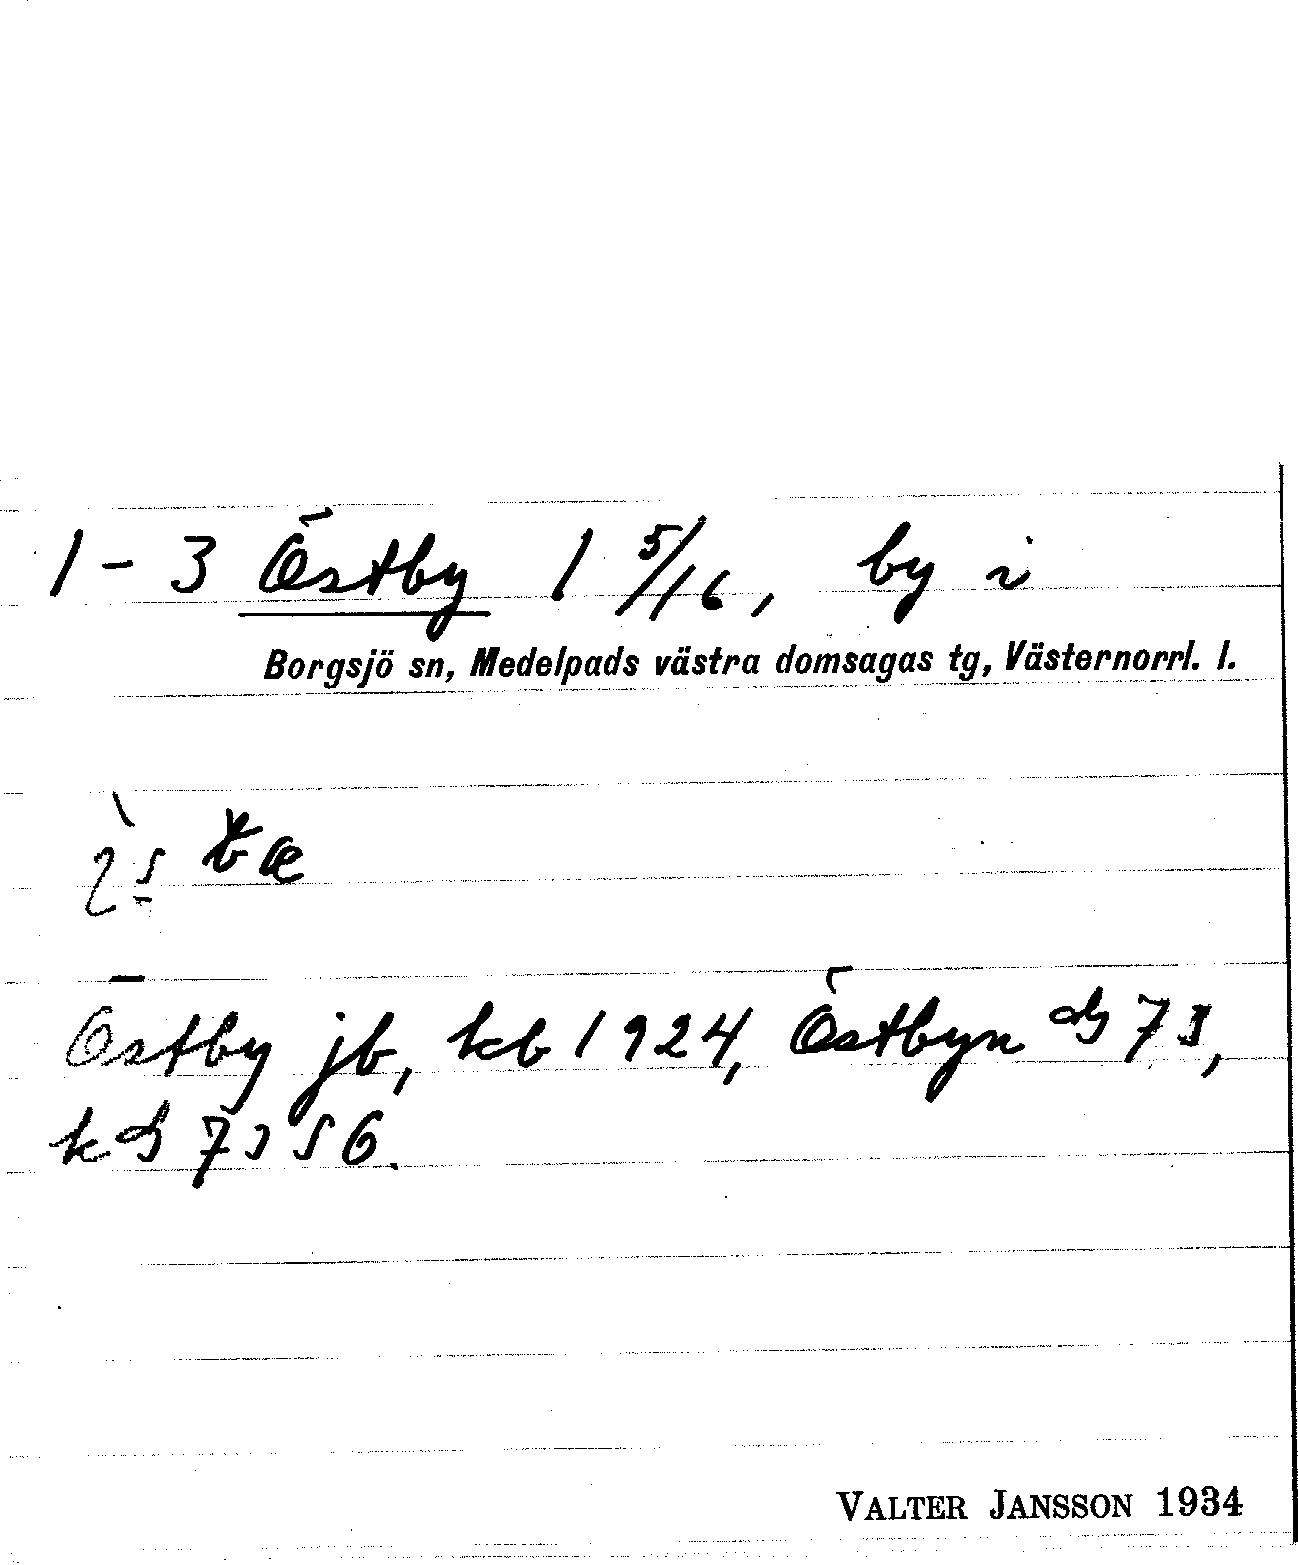 1-3 Östby 1 5/16, by i
Borgsjö sn, Medelpads västra domsagas tg, Västernorrl. l.
Östby jb, kb 1924, Östbyn
VALTER JANSSON 1934